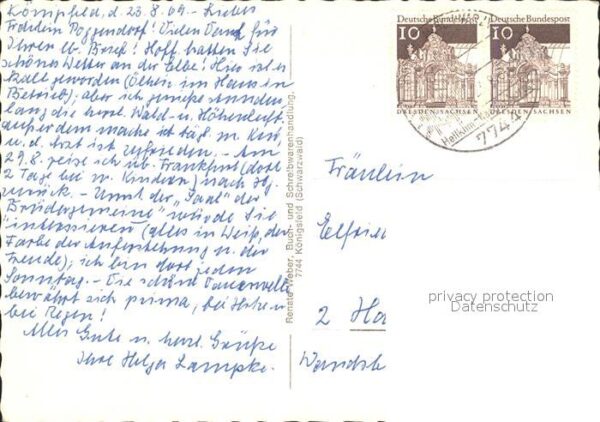 Königsfeld, d. 23.8.69. - Liebes
Fräulein Poggendorf! Vielen Dank für
Ihren lb. Brief! Hoff. hatten Sie
schönes Wetter an der Elbe! Hier ist es
kalt geworden (Öfen im Haus in
Betrieb); aber ich geniesse stunden
lang die herrl. Wald- u. Höhenluft,
außerdem mache ich tägl. m. Kur,
u. d. Arzt ist zufrieden. - Am
29.8. reise ich üb. Frankfurt (dort
2 Tage bei m. Kindern) nach Hg.
zurück. - Der "Saal" der
Brüdergemeine" würde Sie
interessieren (alles in Weiß, der
Farbe der Auferstehung u. der
Freude); ich bin dort jeden
Sonntag. - Die schöne Dauerwelle
bewährt sich prima, bei Hitze u.
bei Regen!
Alles Gute u. herzl. Grüße
Ihre Helga Lampke.
Renate Weber, Buch- und Schreibwarenhandlung,
7744 Königsfeld (Schwarzwald)
Deutsche Bundespost
10
DRESDEN/SACHSEN
Deutsche Bundespost
10
DRESDEN/SACHSEN
774
Fräulein
Elfriede
2 Ha
Wandsb
privacy protection
Datenschutz